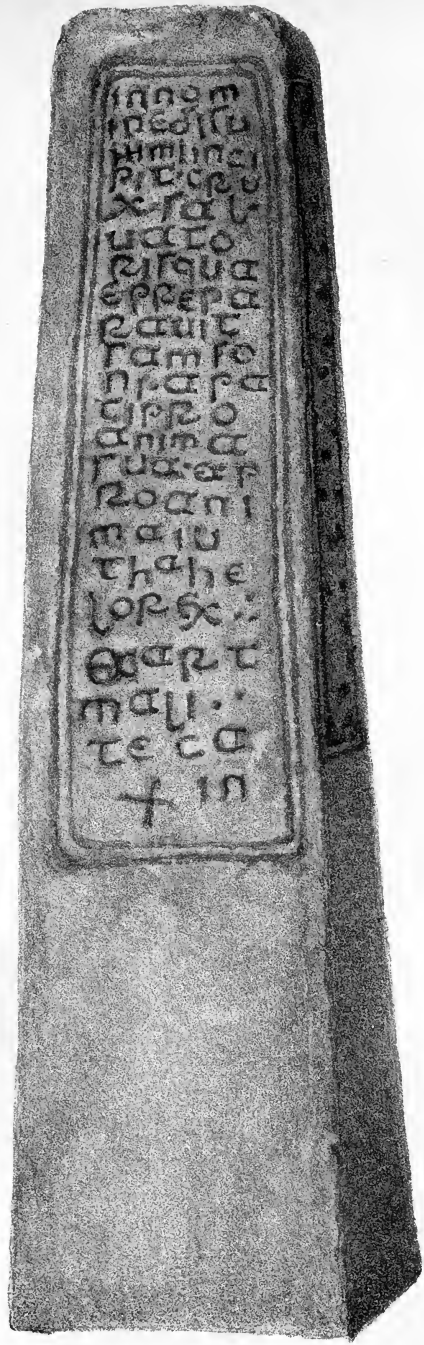 innom
inedisu
mmiinci
pit·cru
x·sal
uato
risqua
eprepa
rauit
samso
niapa
tipro
anima
sua·ep
roani
maiu
thahe
lorex:·
etart
mali·:
teca
+ in